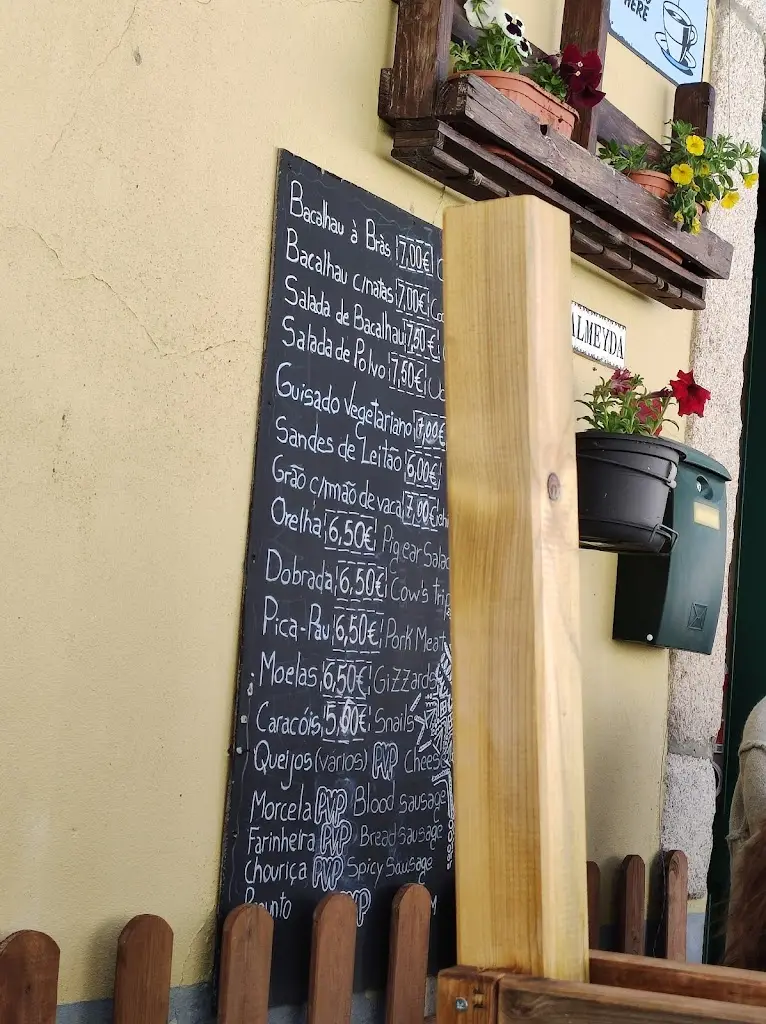 HERE
Bacalhau à Bràs 7,00€
Bacalhau c/natas 7,00€
Salada de Bacalhau 7,50€
Salada de Polvo 7,50€
Guisado Vegetariano 7,00€
Sandes de Leitão 6,00€
Grão c/mão de vaca 7,00€
Orelha 6,50€ Pig ear Salad
Dobrada 6,50€ Cow's trip
Pica-Pau 6,50€ Pork Meat
Moelas 6,50€ Gizzards
Caracóis 5,00€ Snails
Queijos (varios) PVP Chees
Morcela PVP Blood sausage
Farinheira PVP Bread sausage
Chouriça PVP Spicy Sausage
PVP
ALMEYDA